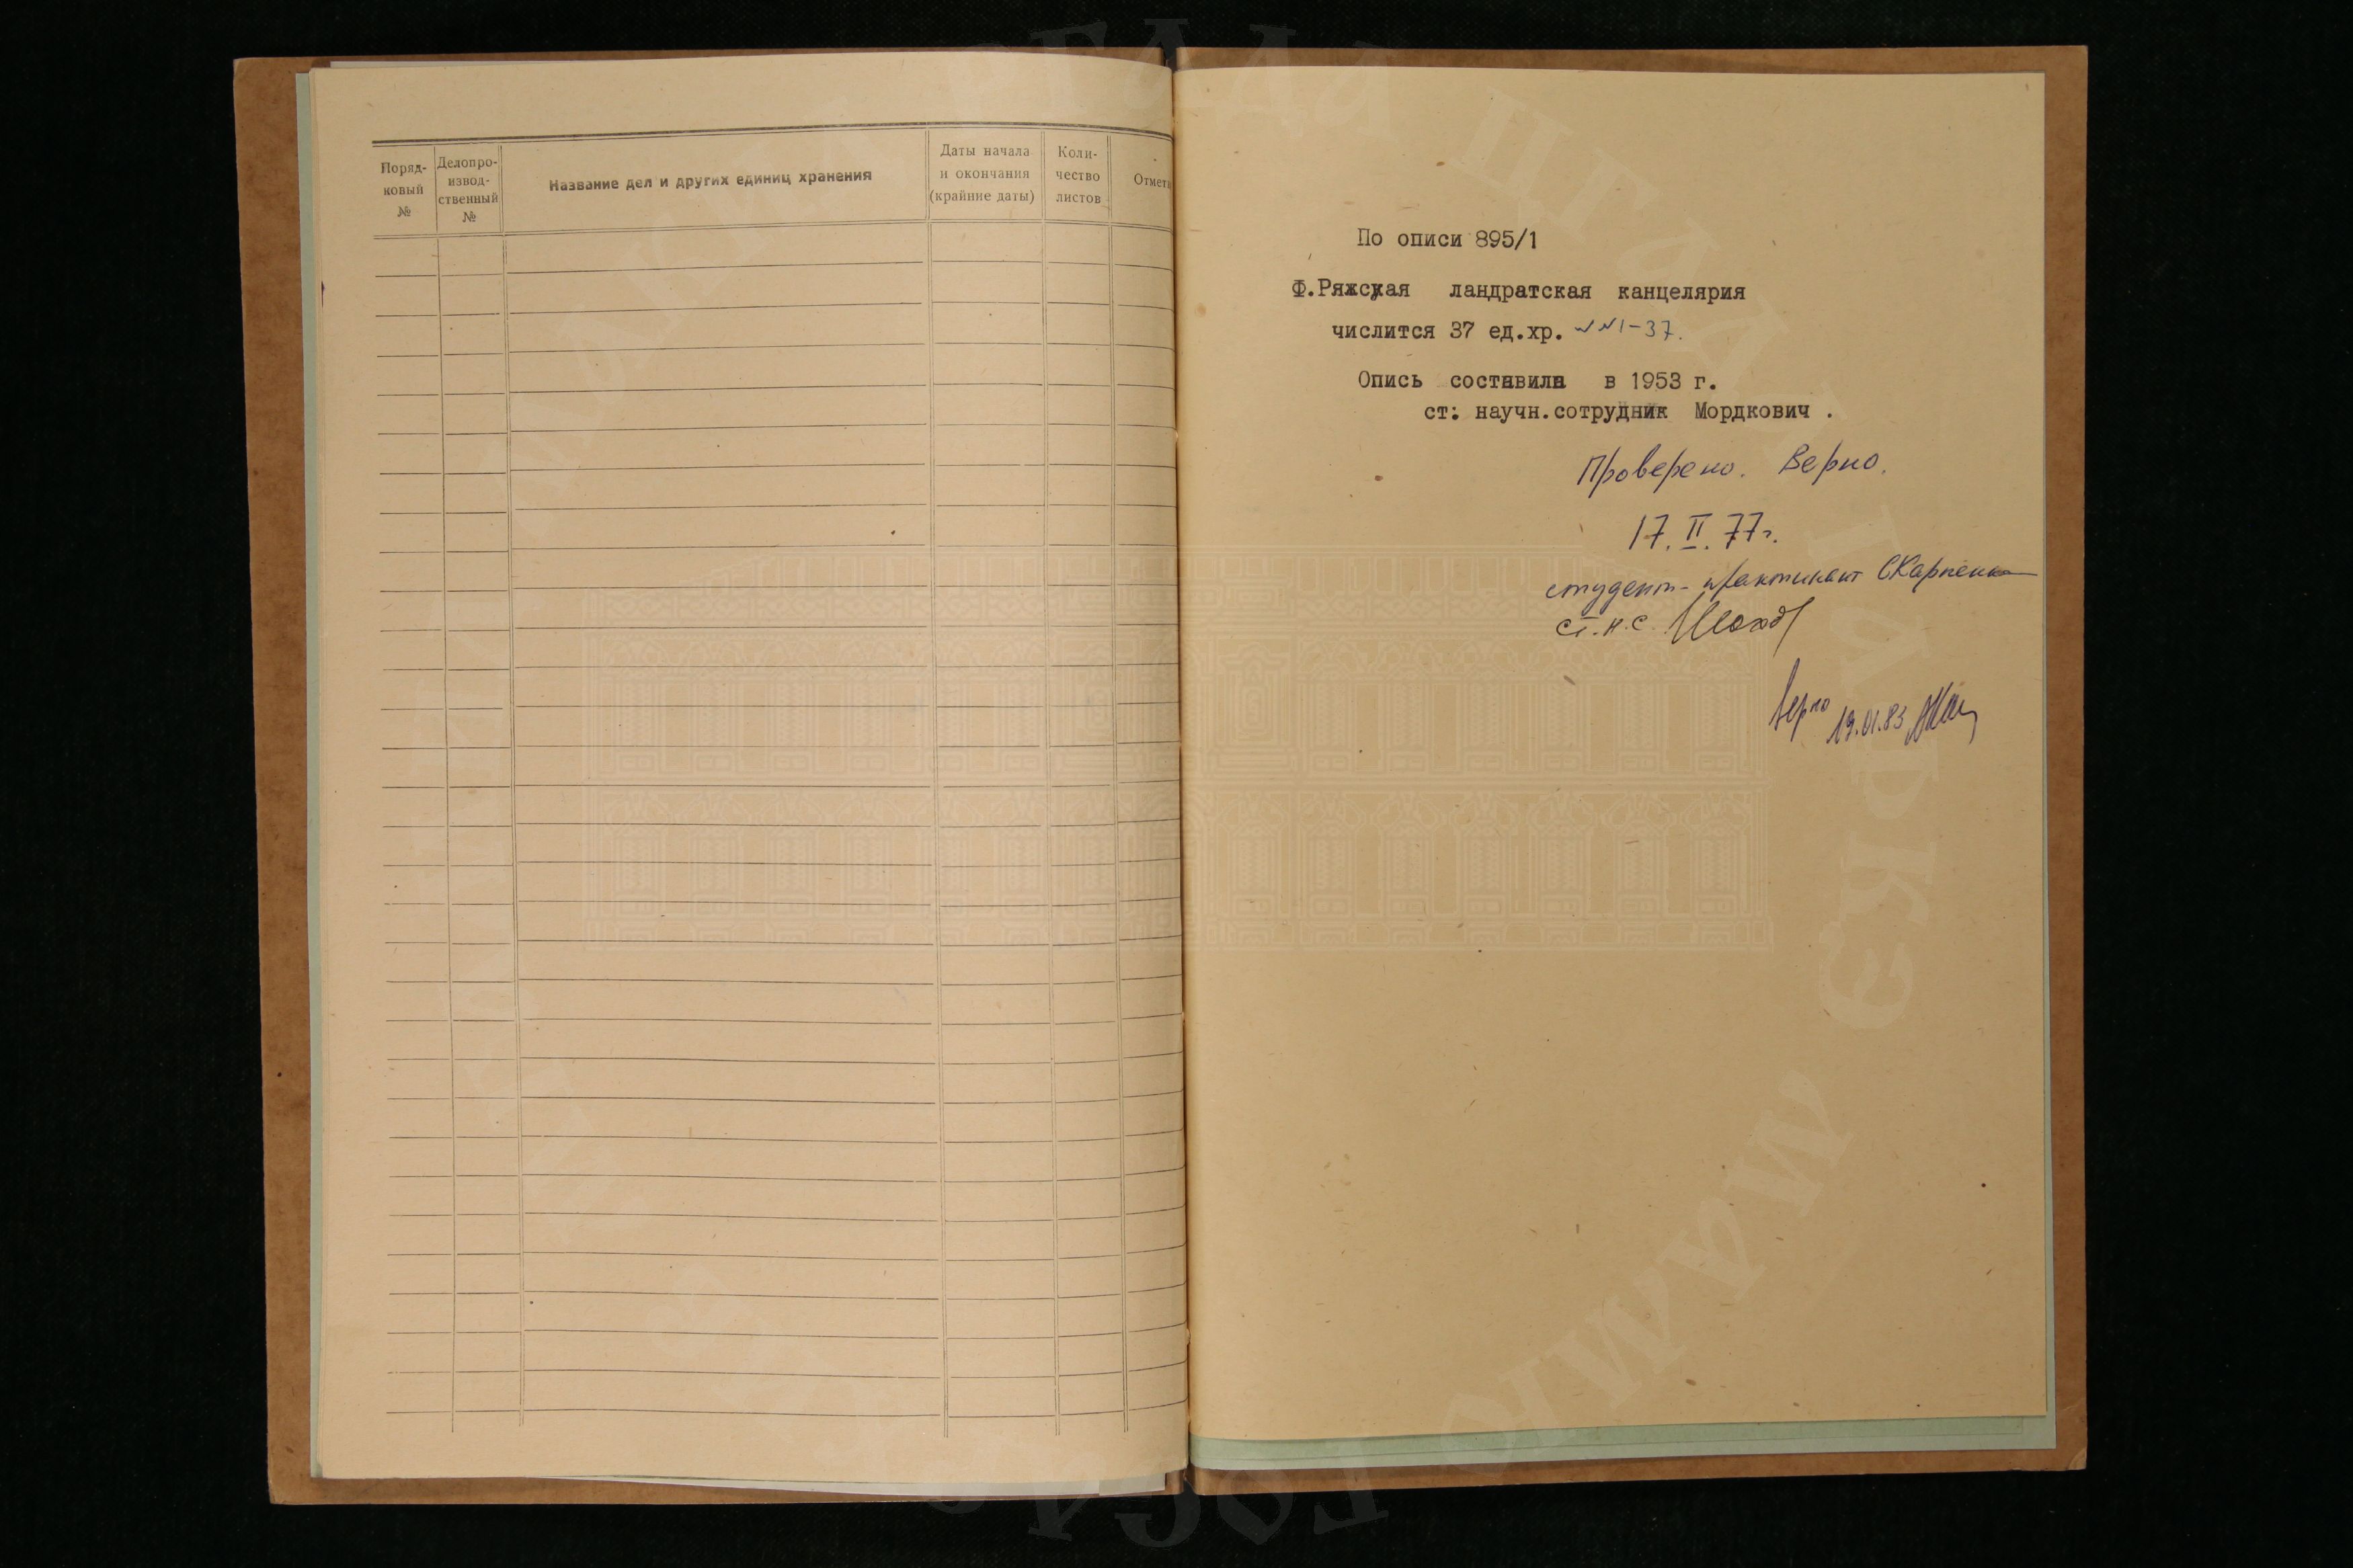 Поряд-
ковый
№
Делопро-
извод-
ственный
№
Название дел и других единиц хранения
Даты начала
и окончания
(крайние даты)
Коли-
чество
листов
По описи 895/1
Ф.Ряжская ландратская канцелярия
числится 37 ед.хр. №№1-37.
Опись составила в 1953 г.
ст: научн.сотрудник Мордкович .
Проверено. Верно.
17.II.77г.
студент-практикант СКарпенко
ст.н.с.
Верно 19.01.83